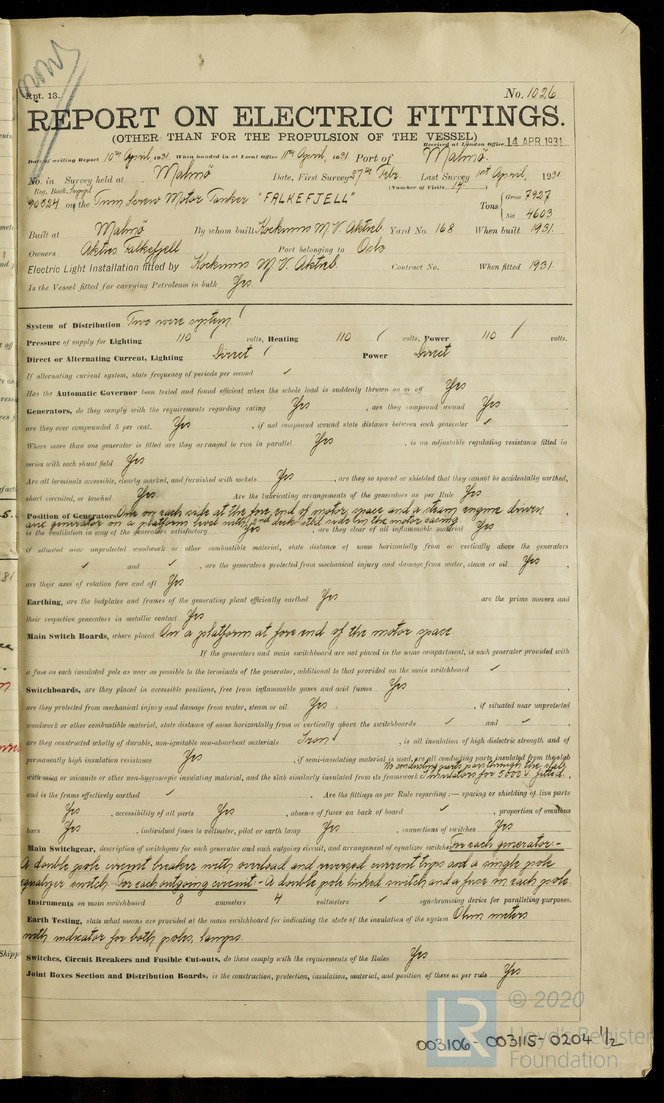 Rpt. 13.
No. 1026
REPORT ON ELECTRIC FITTINGS.
(OTHER THAN FOR THE PROPULSION OF THE VESSEL)
Received at London Office 14 APR 1931
Date of writing Report 10th April, 1931. When handed in at Local Office 11th April, 1931 Port of Malmö.
No. in Survey held at Malmö Date, First Survey 27th Febr. Last Survey 1st April, 1931
Reg. Book. Suppl (Number of Visits 14.)
90324 on the Twin Screw Motor Tanker "FALKEFJELL" Tons { Gross 7927
Net 4603
Built at Malmö By whom built Kockums M.V. Aktieb. Yard No. 168 When built 1931.
Owners Akties Falkefjell Port belonging to Oslo
Electric Light Installation fitted by Kockums M.V. Aktieb. Contract No. When fitted 1931.
Is the Vessel fitted for carrying Petroleum in bulk Yes
System of Distribution Two wire system
Pressure of supply for Lighting 110 volts, Heating 110 volts, Power 110 volts.
Direct or Alternating Current, Lighting Direct Power Direct
If alternating current system, state frequency of periods per second ✓
Has the Automatic Governor been tested and found efficient when the whole load is suddenly thrown on or off Yes
Generators, do they comply with the requirements regarding rating Yes , are they compound wound Yes
are they over compounded 5 per cent. Yes , if not compound wound state distance between each generator ✓
Where more than one generator is fitted are they arranged to run in parallel Yes , is an adjustable regulating resistance fitted in
series with each shunt field Yes
Are all terminals accessible, clearly marked, and furnished with sockets Yes , are they so spaced or shielded that they cannot be accidentally earthed,
short circuited, or touched Yes Are the lubricating arrangements of the generators as per Rule Yes
Position of Generators One on each side at the fore end of motor space and a steam engine driven
one generator on a platform level with 2nd deck stbd side in the motor casing
is the ventilation in way of the generators satisfactory Yes , are they clear of all inflammable material Yes
if situated near unprotected woodwork or other combustible material, state distance of same horizontally from or vertically above the generators
✓ and ✓ , are the generators protected from mechanical injury and damage from water, steam or oil Yes ,
are their axes of rotation fore and aft Yes
Earthing, are the bedplates and frames of the generating plant efficiently earthed Yes are the prime movers and
their respective generators in metallic contact Yes
Main Switch Boards, where placed On a platform at fore end of the motor space
If the generators and main switchboard are not placed in the same compartment, is each generator provided with
a fuse on each insulated pole as near as possible to the terminals of the generator, additional to that provided on the main switchboard ✓
Switchboards, are they placed in accessible positions, free from inflammable gases and acid fumes Yes ,
are they protected from mechanical injury and damage from water, steam or oil Yes , if situated near unprotected
woodwork or other combustible material, state distance of same horizontally from or vertically above the switchboards ✓ and ✓ ,
are they constructed wholly of durable, non-ignitable non-absorbent materials Iron , is all insulation of high dielectric strength and of
permanently high insulation resistance Yes , if semi-insulating material is used, are all conducting parts insulated from the slab
No conducting parts pass through the slab
with mica or micanite or other non-hygroscopic insulating material, and the slab similarly insulated from its framework Insulators for 5000 V fitted ,
and is the frame effectively earthed ✓ . Are the fittings as per Rule regarding :— spacing or shielding of live parts
Yes , accessibility of all parts Yes , absence of fuses on back of board ✓ , proportion of omnibus
bars Yes , individual fuses to voltmeter, pilot or earth lamp Yes , connections of switches Yes
Main Switchgear, description of switchgear for each generator and each outgoing circuit, and arrangement of equalizer switches For each generator:-
A double pole circuit breaker with overload and reversed current trips and a single pole
equalizer switch. For each outgoing circuit:- A double pole linked switch and a fuse in each pole.
Instruments on main switchboard 8 ammeters 4 voltmeters ✓ synchronising device for paralleling purposes.
Earth Testing, state what means are provided at the main switchboard for indicating the state of the insulation of the system Ohm meters
with indicator for both poles, lamps.
Switches, Circuit Breakers and Fusible Cut-outs, do these comply with the requirements of the Rules Yes
Joint Boxes Section and Distribution Boards, is the construction, protection, insulation, material, and position of these as per rule Yes
LR © 2020
Lloyd's Register
Foundation
003106 - 003115 - 0204 1/2